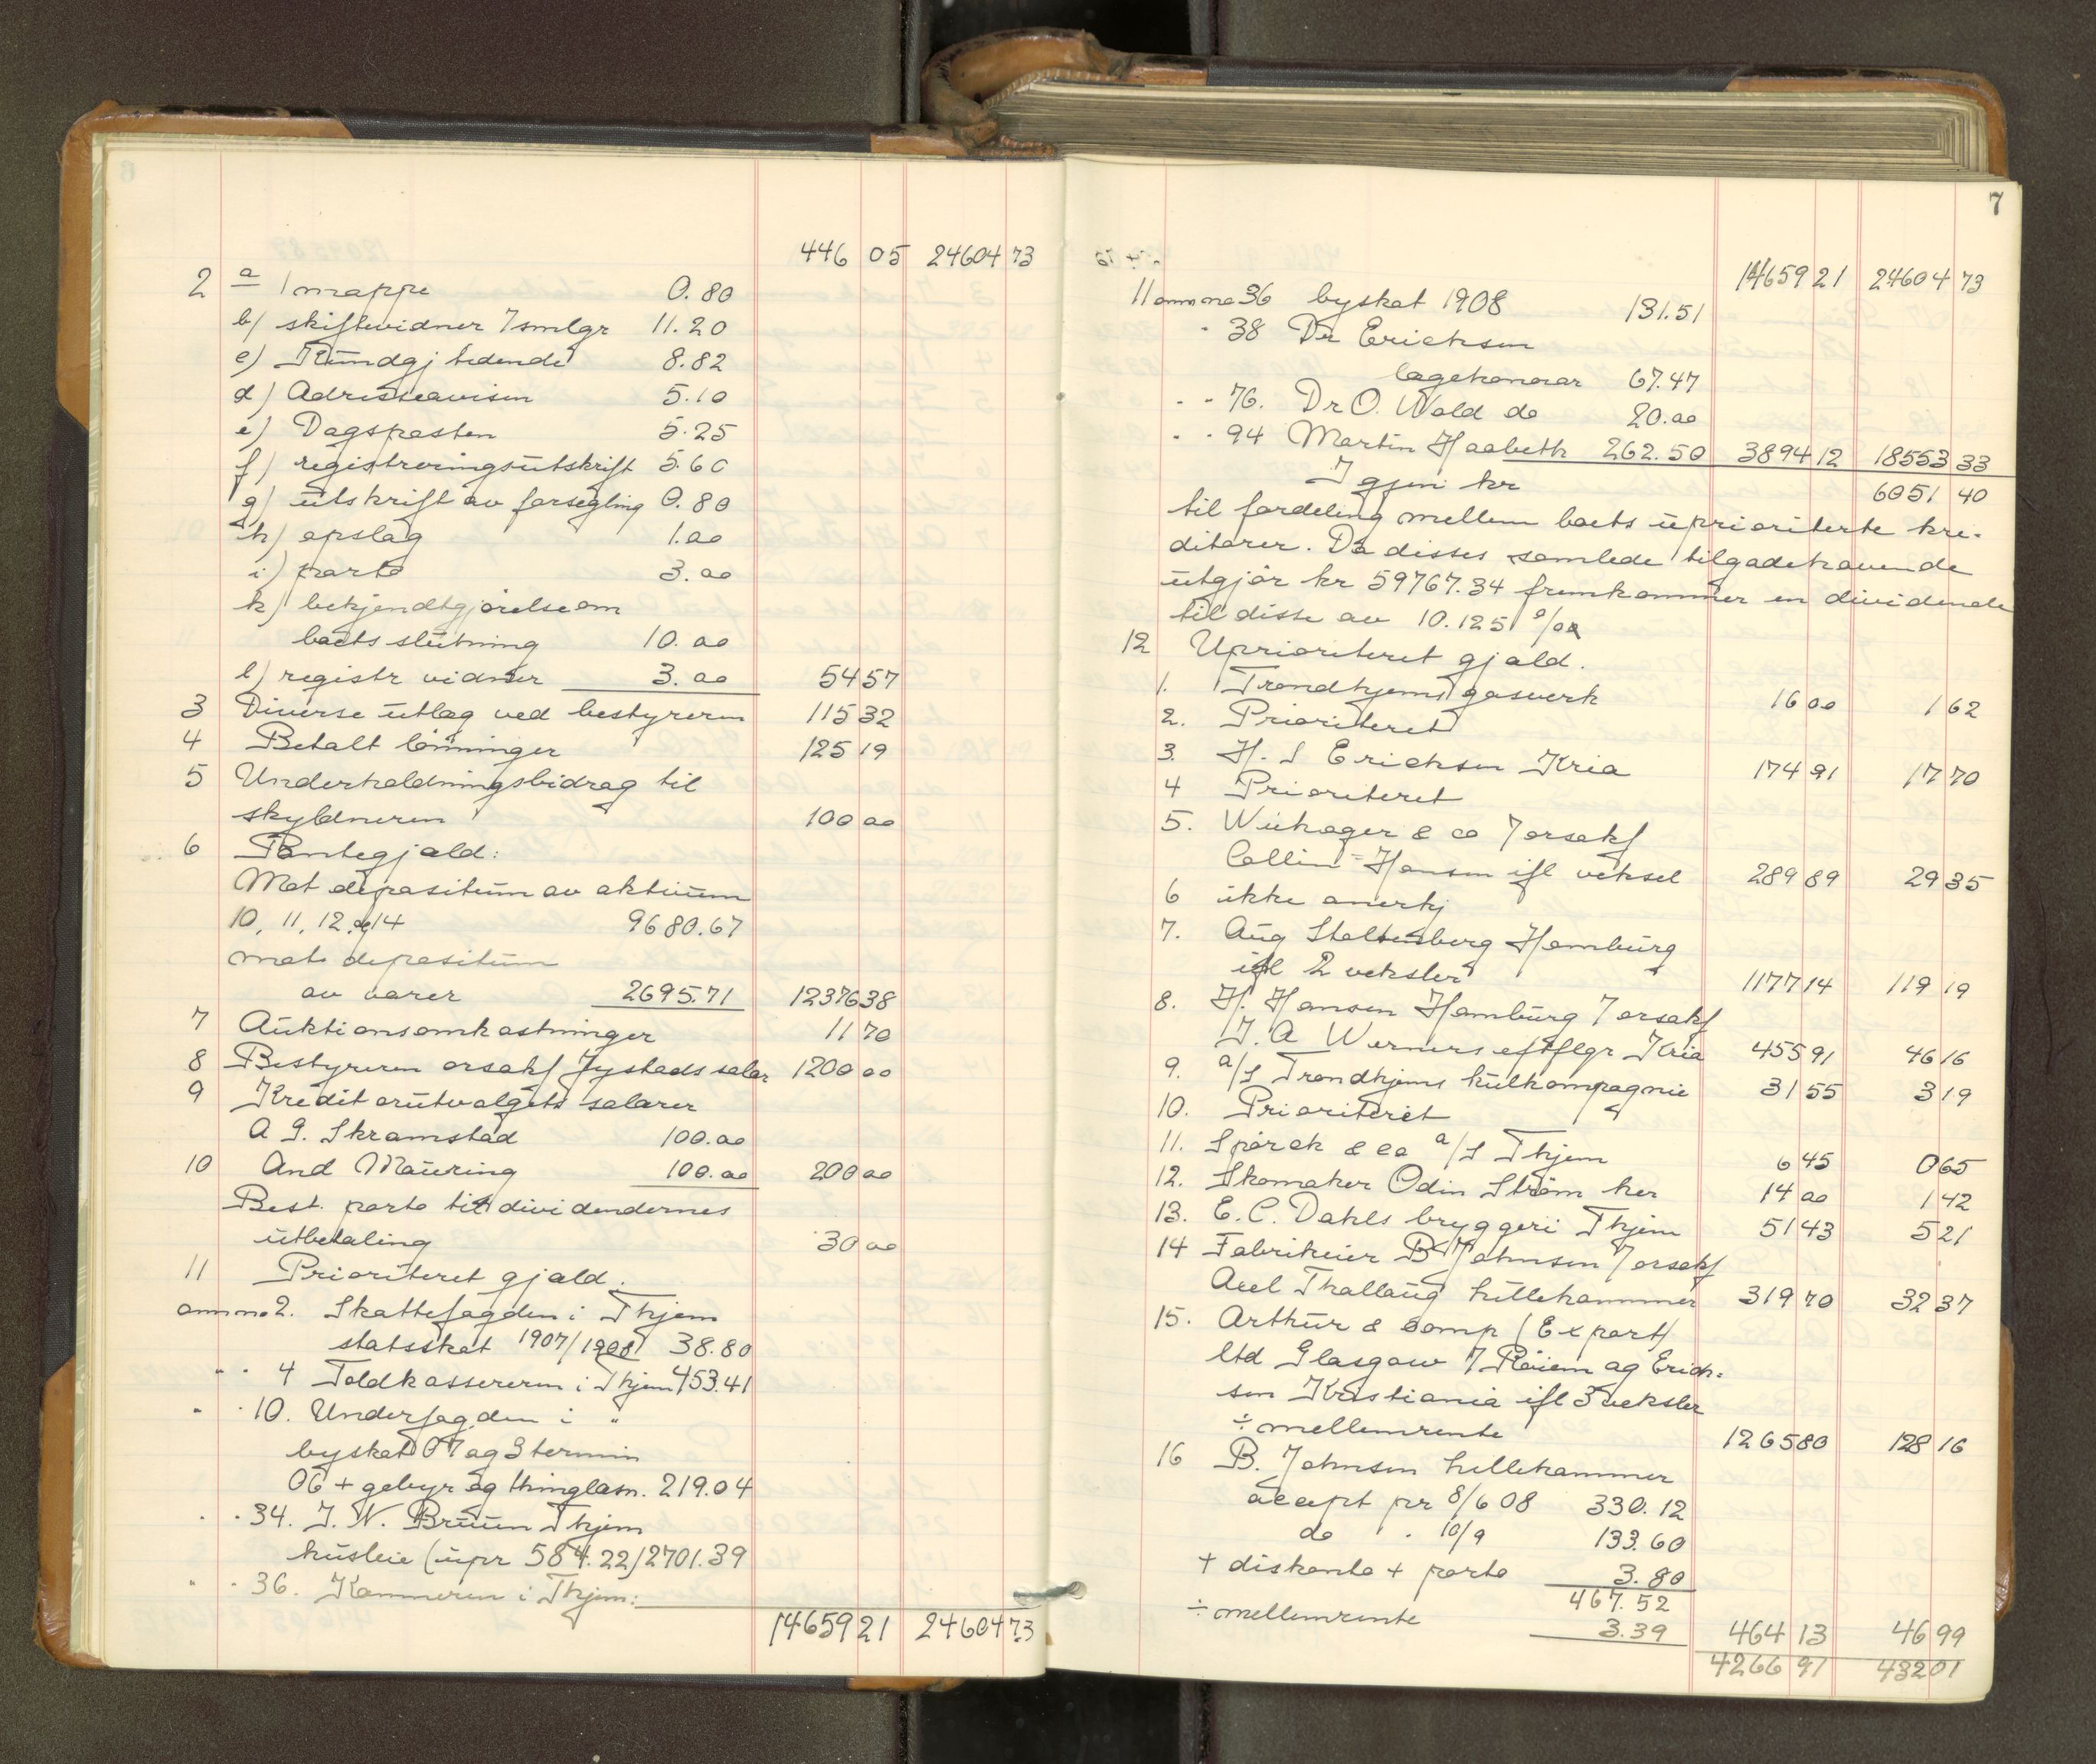 446 05 24604 73
2 a 1 mappe 0.80
b) skiftevidner 7 smlgr 11.20
c) Kundgj tidende 8.82
d) Adresseavisen 5.10
e) Dagsposten 5.25
f) registreringsutskrift 5.60
g) utskrift av forsegling 0.80
h) opslag 1.00
i) porto 3.00
k) bekjendtgjørelse om
boets slutning 10.00
l) registr vidner 3.00 54 57
3 Diverse utlæg ved bestyreren 115 32
4 Betalt lønninger 125 19
5 Underholdningsbidrag til
skyldneren 100 00
6 Pantegjæld:
Mot depositum av aktivum
10, 11, 12 og 14 9680.67
mot depositum
av varer 2695.71 12376 38
7 Auktionsomkostninger 11 70
8 Bestyreren orsakf Jystads salær 1200 00
9 Kreditorutvalgets salærer
A G. Skramstad 100.00
10 And Mauring 100.00 200 00
Best. porto til dividendernes
utbetaling 30 00
11 Prioriteret gjæld.
anm no 2. Skattefogden i Thjem
statsskat 1907/1908 38.80
" · 4 Toldkassereren i Thjem 453.41
" · 10. Underfogden i "
byskat 07 og 3 termin
06 + gebyr og thinglæsn. 219.04
· · 34. J. N. Bruun Thjem
husleie (upr 584.22) 2701.39
" · 36. Kæmneren i Thjem:
14659 21 24604 73
7
14659 21 24604 73
11 anm no 36 byskat 1908 131.51
· 38 Dr Erichsen
lægehonorar 67.47
· · 76. Dr O. Wold do 20.00
· · 94 Martin Haabeth 262.50 3894 12 18553 33
Igjen kr 6051 40
til fordeling mellem boets uprioriterte kre-
ditorer. Da disses samlede tilgodehavende
utgjør kr 59767.34 fremkommer en dividende
til disse av 10.125 %
12 Uprioriteret gjæld.
1. Trondhjems gasverk 16 00 1 62
2. Prioriteret
3. H. S Erichsen Kria 174 91 17 70
4 Prioriteret
5. Wiehager & co 7 orsakf
Collin-Hansen ifl veksel 289 89 29 35
6 ikke anerkj
7. Aug Stoltenberg Hamburg
ifl 2 veksler 1177 14 119 19
8. H. Hansen Hamburg 7 orsakf
J. A Werners eftflgr Kria 455 91 46 16
9. a/s Trondhjems kulkompagnie 31 55 3 19
10. Prioriteret
11. Spørck & co a/s Thjem 6 45 0 65
12. Skomaker Odin Strøm her 14 00 1 42
13. E. C. Dahls bryggeri Thjem 51 43 5 21
14 Fabrikeier B Johnsen 7 orsakf
Axel Thallaug Lillehammer 319 70 32 37
15. Arthur & Comp (Export)
ltd Glasgow 7 Røiem og Erich-
sen Kristiania ifl 3 veksler
÷ mellemrente 1265 80 128 16
16 B. Johnsen Lillehammer
accept pr 8/6 08 330.12
do · 10/9 133.60
+ diskonto + porto 3.80
467.52
÷ mellemrente 3.39 464 13 46 99
4266 91 432 01